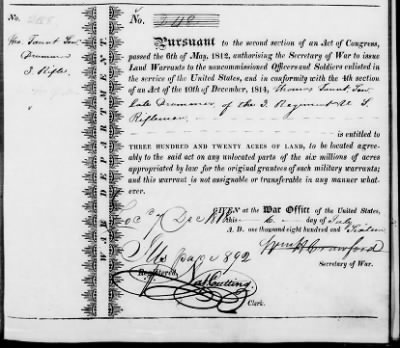 No.
Drummer
3. Rifles.
WAR DEPARTMENT
No. 248
Pursuant to the second section of an Act of Congress,
passed the 6th of May, 1812, authorising the Secretary of War to issue
Land Warrants to the noncommissioned Officers and Soldiers enlisted in
the service of the United States, and in conformity with the 4th section
of an Act of the 10th of December, 1814, Thomas
late Drummer of the 3 Regiment U. S.
Riflemen
is entitled to
THREE HUNDRED AND TWENTY ACRES OF LAND, to be located agree-
ably to the said act on any unlocated parts of the six millions of acres
appropriated by law for the original grantees of such military warrants;
and this warrant is not assignable or transferable in any manner what-
ever.
GIVEN at the War Office of the United States,
this 6 day of July
A. D. one thousand eight hundred and Sixteen
Wm H Crawford
Secretary of War.
Ills page 892
Registered,
Nat Cutting
Clerk.